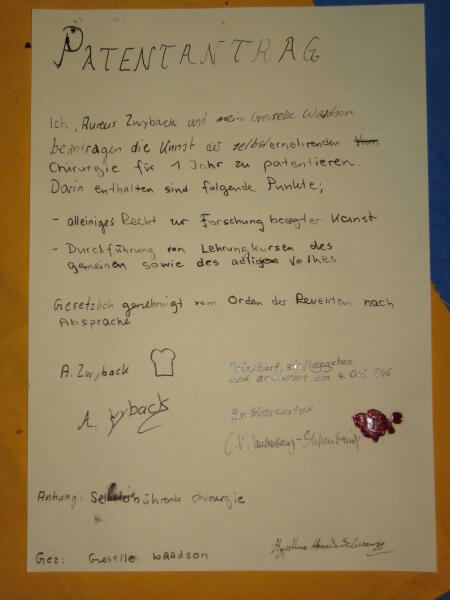 PATENTANTRAG
Ich, Aureus Zwyback und mein Geselle Waadson
beantragen die Kunst des selbsternährenden
Chirurgie für 1 Jahr zu patentieren.
Darin enthalten sind folgende Punkte;
- alleiniges Recht zur Forschung besagter Kunst
- Durchführung von Lehrungkursen des
gemeinen sowie des adligen Volkes
Gesetzlich genehmigt vom Orden des Reveliten nach
Absprache
A. Zwyback
und archiviert am 4.
A. Zwyback
Anhang: Selbsternährende chirurgie
Gez: Geselle Waadson